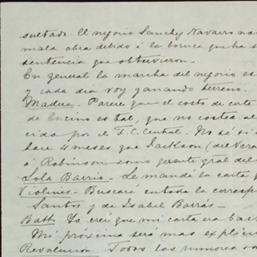 sultado. El negocio Sanchez Navarro
mala obra debido á la bronca que ha
sentencia que obtuvieron.
En general la marcha del negocio es
y cada dia voy ganando terreno.
Madera. Parece que el costo de corte
de Encino es tal, que no costea al
cida por el F.C. Central. No sé si
hace 4 meses que Jackson (de Vera
á Robinson como gerente gral del
Lola Barrio. Le mandé la carta
Violines. Buscaré en toda la corresp
Santos y de Isabel Barrás.
Bath. Yo creí que mi carta era bas
Mi próxima será mas esplíc
Revolucion. Todos los rumores